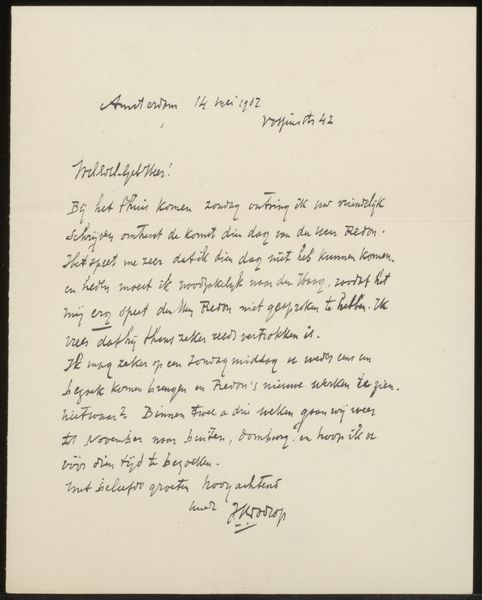 Amsterdam 14 Mei 1902
Vossiusstr 42
WelEdelGeb Heer!
Bij het thuis komen zondag ontving ik uw vriendelijk
schrijven omtrent de komst dien dag van den heer Redon.
Het speet me zeer dat ik dien dag niet heb kunnen komen.
en heden moest ik noodzakelijk naar den Haag, zoodat het
mij erg speet den Heer Redon niet gesproken te hebben. Ik
vrees dat hij thans zeker reeds vertrokken is.
Ik mag zeker op een Zondag middag u weder eens een
bezoek komen brengen en Redon's nieuwe werken te zien.
nietwaar? Binnen twee a drie weken gaan wij weer
tot November naar buiten, Domburg. en hoop ik u
vóór dien tijd te bezoeken.
Met beleefde groeten hoogachtend
JThToorop